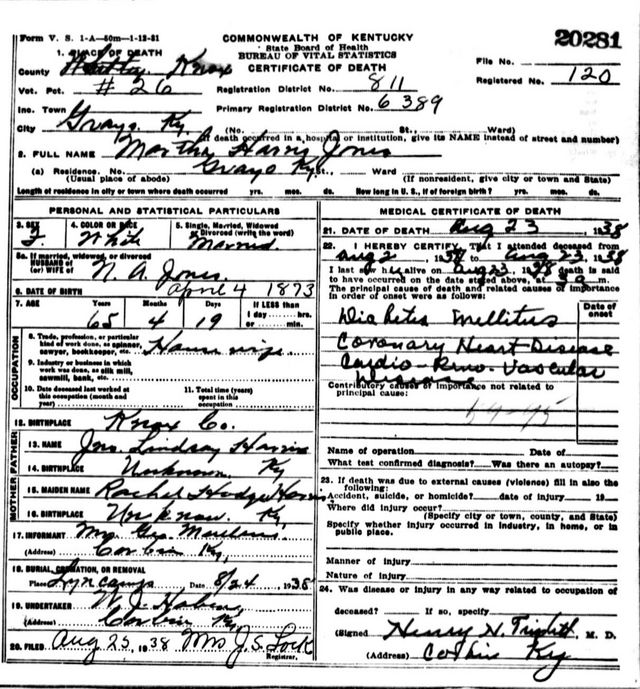 Form V. S. 1-A—50m—1-12-31
COMMONWEALTH OF KENTUCKY
State Board of Health
BUREAU OF VITAL STATISTICS
CERTIFICATE OF DEATH
20281
1. PLACE OF DEATH
County Whitley Knox
File No.
Vot. Pct. #26
Registration District No. 811
Registered No. 120
Inc. Town
Primary Registration District No. 6389
City Grays Ky. (No. St., Ward)
(If death occurred in a hospital or institution, give its NAME instead of street and number)
2. FULL NAME Martha Jones
(a) Residence. No. Grays Ky. St., Ward
(Usual place of abode) (If nonresident, give city or town and State)
Length of residence in city or town where death occurred yrs. mos. ds. How long in U. S., if of foreign birth? yrs. mos. ds.
PERSONAL AND STATISTICAL PARTICULARS
3. SEX F
4. COLOR OR RACE White
5. Single, Married, Widowed or Divorced (write the word) Married
5a. If married, widowed, or divorced
HUSBAND of
(or) WIFE of N. A. Jones
6. DATE OF BIRTH April 4 1873
7. AGE Years Months Days If LESS than
65 4 19 1 day hrs. or min.
OCCUPATION
8. Trade, profession, or particular kind of work done, as spinner, sawyer, bookkeeper, etc.
9. Industry or business in which work was done, as silk mill, sawmill, bank, etc.
10. Date deceased last worked at this occupation (month and year)
11. Total time (years) spent in this occupation
12. BIRTHPLACE Knox Co.
MOTHER FATHER
13. NAME Jno. Lindsay Harris
14. BIRTHPLACE Unknown Ky
15. MAIDEN NAME Rachel Hodge
16. BIRTHPLACE Unknown Ky
17. INFORMANT Mrs Geo
(Address) Corbin Ky,
18. BURIAL, CREMATION, OR REMOVAL
Place Lyncamp Date 8/24 1938
19. UNDERTAKER W. J.
(Address) Corbin Ky
20. FILED Aug 25, 1938 Mrs J. S. Lock
Registrar.
MEDICAL CERTIFICATE OF DEATH
21. DATE OF DEATH Aug 23, 1938
22. I HEREBY CERTIFY, That I attended deceased from
Aug 2, 1938 to Aug 23, 1938
I last saw h alive on Aug 23, 1938 death is said
to have occurred on the date stated above, at 3 a m.
The principal cause of death and related causes of importance
in order of onset were as follows:
Date of onset
Mellitus
Coronary Heart Disease
Cardio- Vascular
Contributory causes of importance not related to
principal cause:
Name of operation Date of
What test confirmed diagnosis? Was there an autopsy?
23. If death was due to external causes (violence) fill in also the following:
Accident, suicide, or homicide? date of injury 19
Where did injury occur?
(Specify city or town, county, and State)
Specify whether injury occurred in industry, in home, or in public place.
Manner of injury
Nature of injury
24. Was disease or injury in any way related to occupation of
deceased? If so, specify
(Signed) Henry N. M. D.
(Address) Corbin Ky